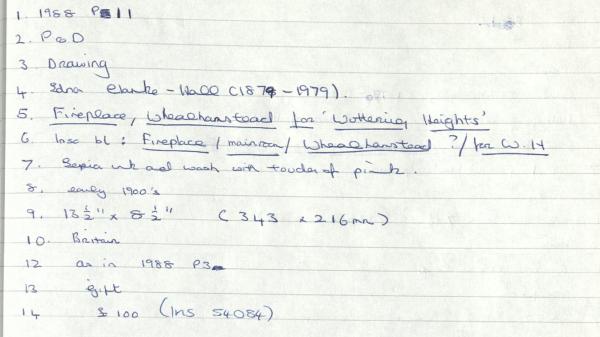 1. 1988 P 11
2. P&D
3 Drawing
4. Edna Clarke-Hall (1879-1979).
5. Fireplace, Whealhamstead for 'Wuthering Heights'
6 Insc bl: Fireplace / mainroom / Whealhamstead ? / for W.H
7. Sepia ink and wash with touches of pink.
8. early 1900's
9. 13½" x 8½" (343 x 216mm)
10. Britain
12 as in 1988 P3
13 gift
14 £100 (Ins 54084)